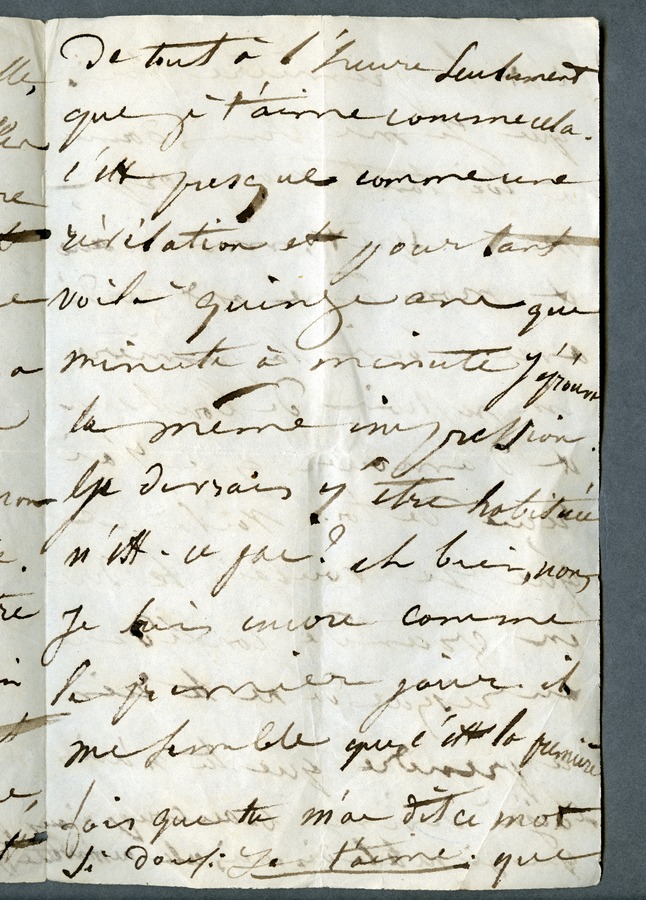 De tout à l'heure seulement
que je t'aime comme cela.
c'est presque comme une
révélation et pourtant
voilà quinze ans que
minute à minute j'éprouve
la même impression.
Je devrais y être habituée
n'est-ce pas ? eh bien, non,
je suis encore comme
le premier jour. il
me semble que c'est la première
fois que tu m'as dit ce mot
si doux : Je t'aime. que